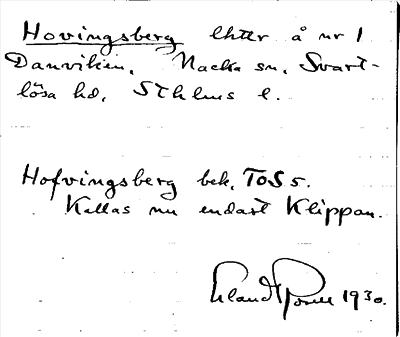 Hovingsberg lht er å nr 1
Danviken, Nacka sn, Svart-
lösa hd, Sthlms l.
Hofvingsberg bek. TOS 5.
Kallas nu endast Klippan.
Erland Rosell 1930.